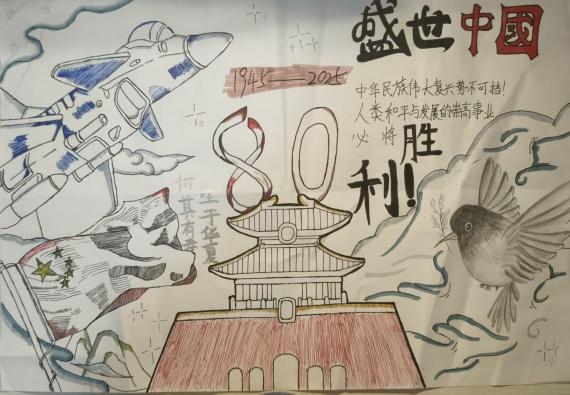 盛世中國
1945——2025
中华民族伟大复兴势不可挡!
人类和平与发展的崇高事业
必将胜利!
80
生于华夏
何其有幸